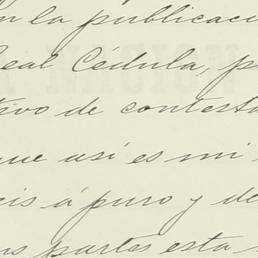 n la publicaci
Real Cédula, p
tivo de contesta
que así es mi
eis á puro y de
as partes esta